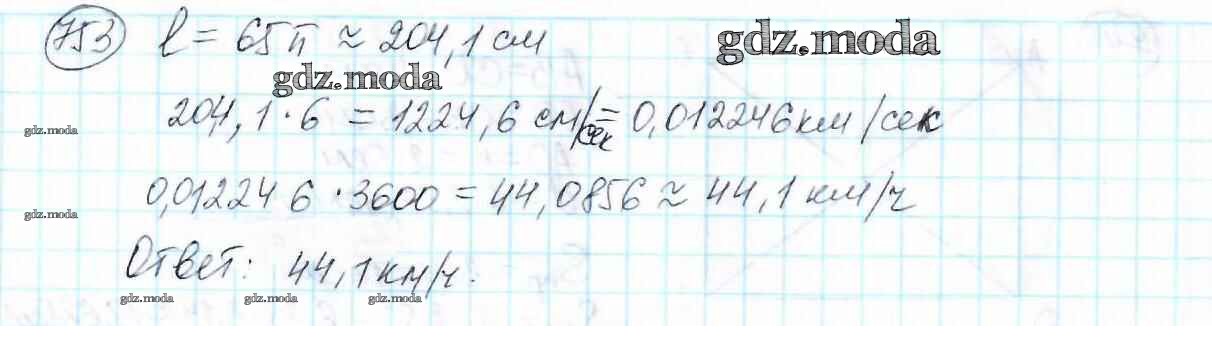 753 ℓ = 65π ≈ 204,1 см
gdz.moda
gdz.moda
204,1 · 6 = 1224,6 см/сек = 0,012246 км/сек
gdz.moda
0,012246 · 3600 = 44,0856 ≈ 44,1 км/ч
gdz.moda
Ответ: 44,1 км/ч.
gdz.moda gdz.moda gdz.moda